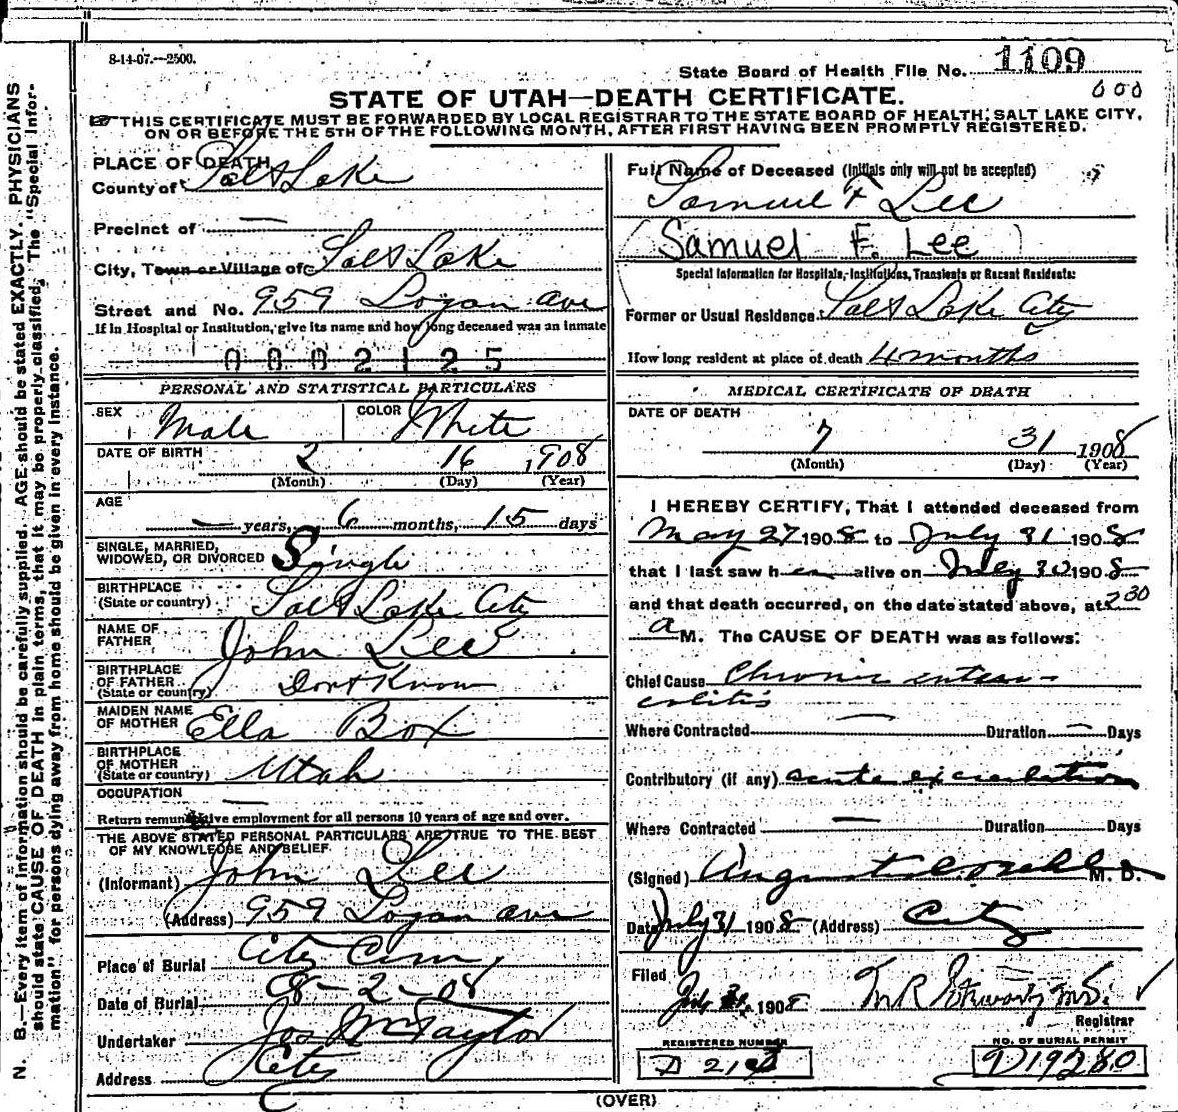 8-14-07.—2500.
State Board of Health File No. 1109
000
STATE OF UTAH—DEATH CERTIFICATE.
THIS CERTIFICATE MUST BE FORWARDED BY LOCAL REGISTRAR TO THE STATE BOARD OF HEALTH, SALT LAKE CITY,
ON OR BEFORE THE 5TH OF THE FOLLOWING MONTH, AFTER FIRST HAVING BEEN PROMPTLY REGISTERED.
PLACE OF DEATH
County of Salt Lake
Precinct of —
City, Town or Village of Salt Lake
Street and No. 959 Logan Ave
If in Hospital or Institution, give its name and how long deceased was an inmate
0002125
PERSONAL AND STATISTICAL PARTICULARS
SEX Male COLOR White
DATE OF BIRTH 2 16 1908
(Month) (Day) (Year)
AGE
— years, 6 months, 15 days
SINGLE, MARRIED,
WIDOWED, OR DIVORCED Single
BIRTHPLACE
(State or country) Salt Lake City
NAME OF
FATHER John Lee
BIRTHPLACE
OF FATHER
(State or country) Dont Know
MAIDEN NAME
OF MOTHER Ella Box
BIRTHPLACE
OF MOTHER
(State or country) Utah
OCCUPATION —
Return remunerative employment for all persons 10 years of age and over.
THE ABOVE STATED PERSONAL PARTICULARS ARE TRUE TO THE BEST
OF MY KNOWLEDGE AND BELIEF
(Informant) John Lee
(Address) 959 Logan Ave
Place of Burial City Cem
Date of Burial 8-2-08
Undertaker Jos Wm Taylor
Address City
Full Name of Deceased (Initials only will not be accepted)
Samuel F Lee
(Samuel F. Lee)
Special Information for Hospitals, Institutions, Transients or Recent Residents:
Former or Usual Residence Salt Lake City
How long resident at place of death 4 months
MEDICAL CERTIFICATE OF DEATH
DATE OF DEATH
7 31 1908
(Month) (Day) (Year)
I HEREBY CERTIFY, That I attended deceased from
May 27 1908 to July 31 1908
that I last saw h alive on July 30 1908
and that death occurred, on the date stated above, at 2 30
a M. The CAUSE OF DEATH was as follows:
Chief Cause Chronic entero-
colitis
Where Contracted — Duration — Days
Contributory (if any) acute exacerbation
Where Contracted — Duration Days
(Signed) M. D.
Date July 31 1908 (Address) City
Filed
July 31 1908 M R Stewart M.D.
Registrar
REGISTERED NUMBER
NO. OF BURIAL PERMIT
D19280
(OVER)
N. B.—Every item of information should be carefully supplied. AGE should be stated EXACTLY. PHYSICIANS
should state CAUSE OF DEATH in plain terms, that it may be properly classified. The "Special Infor-
mation" for persons dying away from home should be given in every instance.